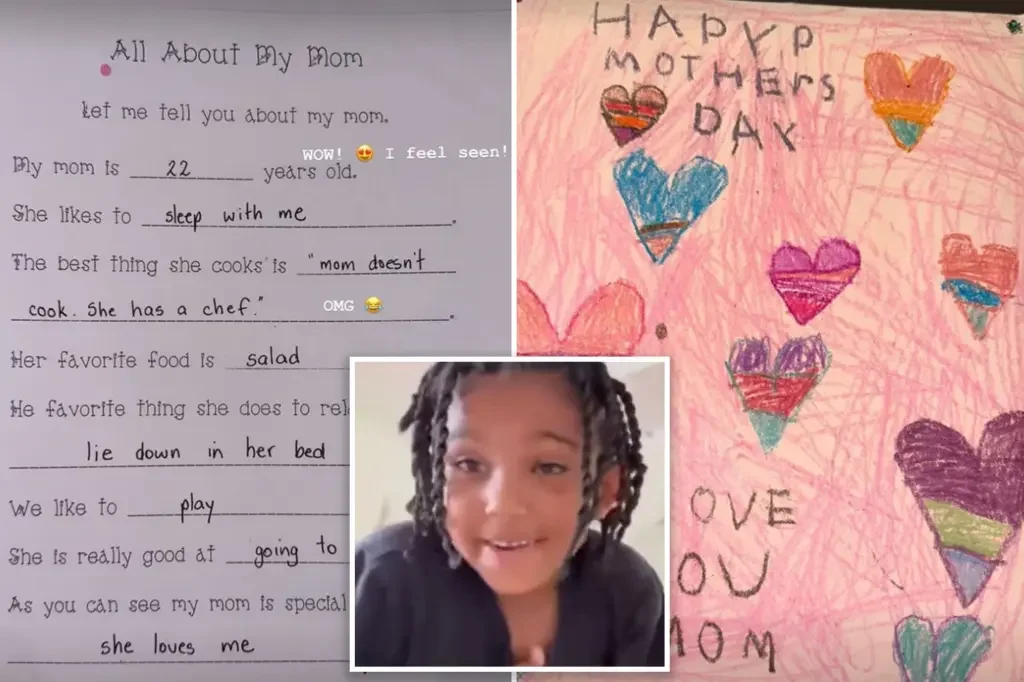 All About My Mom
Let me tell you about my mom.
WOW! 😍 I feel seen!
My mom is 22 years old.
She likes to sleep with me.
The best thing she cooks is "mom doesn't
cook. She has a chef."
OMG 😂
Her favorite food is salad
He favorite thing she does to rel
lie down in her bed
We like to play
She is really good at going to
As you can see my mom is special
she loves me
HAPYP
MOTHErS
DAY
OVE
OU
MOM